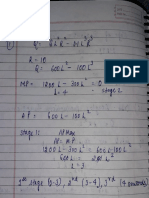 1
K = 10
Q = 600L² - 100L³
MP = 1200L - 300L² = 0
L = 4
stage 2
AP = 600L - 100L²
Stage 1:
AP = MP
1200L - 300L² = 600L - 100L²
600L = 200L²
L = 3
1st stage (0-3), 2nd (3-4), 3rd (4 onwards)